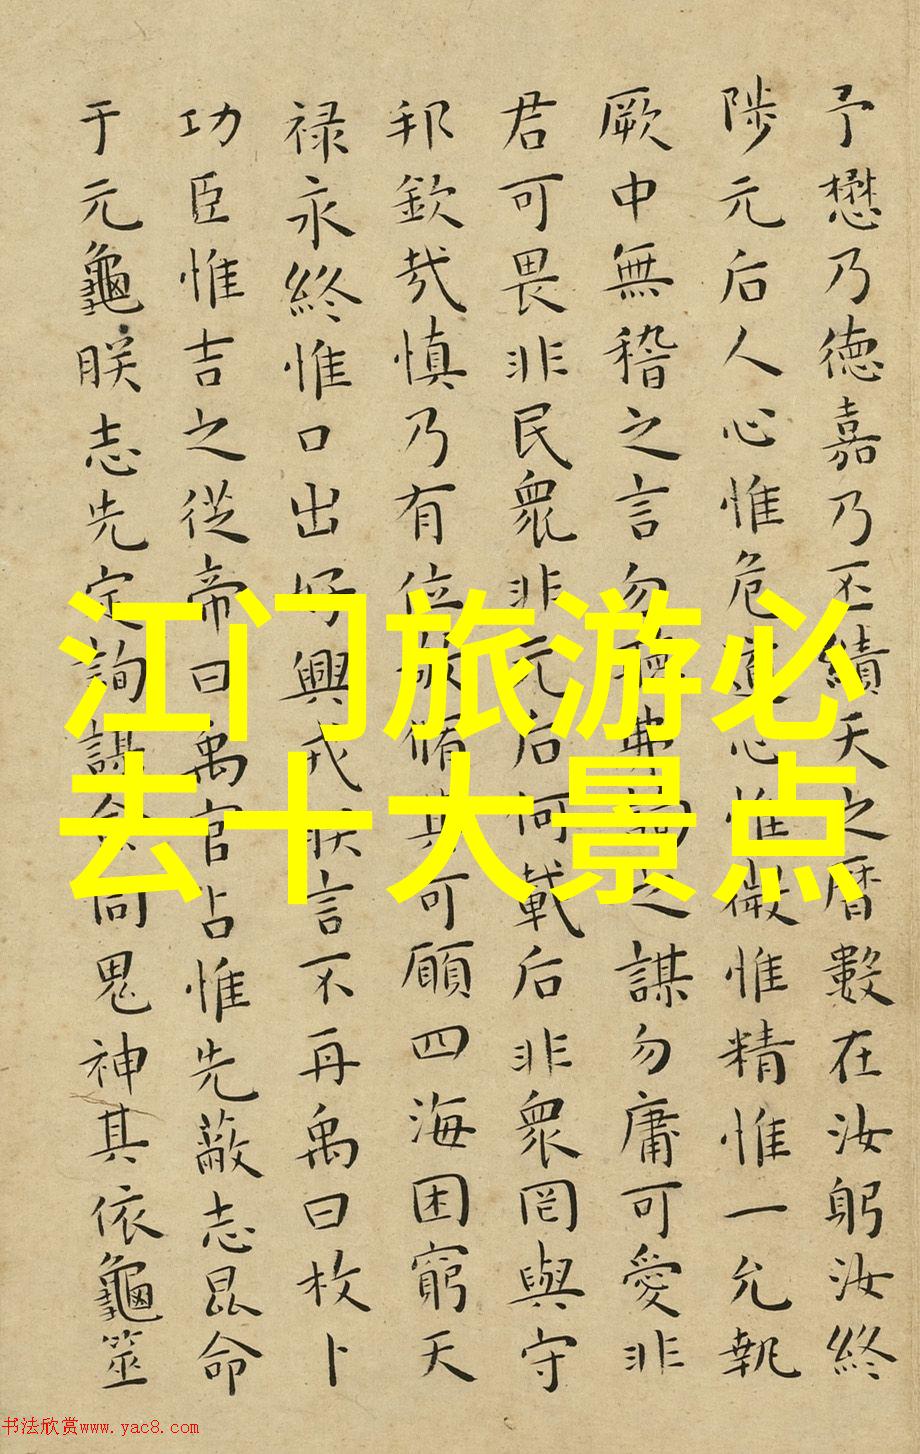 予懋乃德嘉乃丕績天之曆數在汝躬汝終
陟元后人心惟危道心惟微惟精惟一允執
厥中無稽之言勿聽弗詢之謀勿庸可愛非
君可畏非民衆非元后何載后非衆罔與守
邦欽哉慎乃有位敬脩其可願四海困窮天
禄永終惟口出好興戎朕言不再禹曰枚卜
功臣惟吉之從帝曰禹官占惟先蔽志昆命
于元龜朕志先定詢謀僉同鬼神其依龜筮
江门旅游必
去十大景点
书法欣赏www.yac8.com